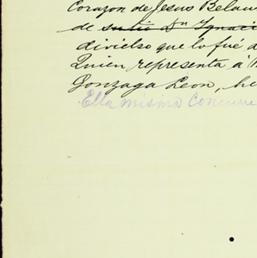 Corazon de Jesus Belau
de sutio Dn Ignaci
divieso que lo fué d
Quien representa á
Gonzaga Leon, he
Ella misma concurre